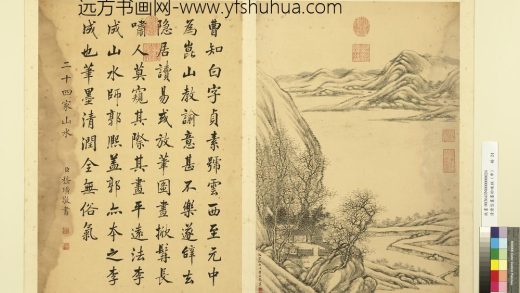 远方书画网-www.yfshuhua.com
曹知白字貞素號雲西至元中
為崑山教諭意甚不樂遂辭去
隱居讀易或放筆圖畫掀髯長
嘯人莫窺其際其畫平遠法李
成山水師郭熙蓋郭亦本之李
成也筆墨清潤全無俗氣
二十四家山水
臣敬書